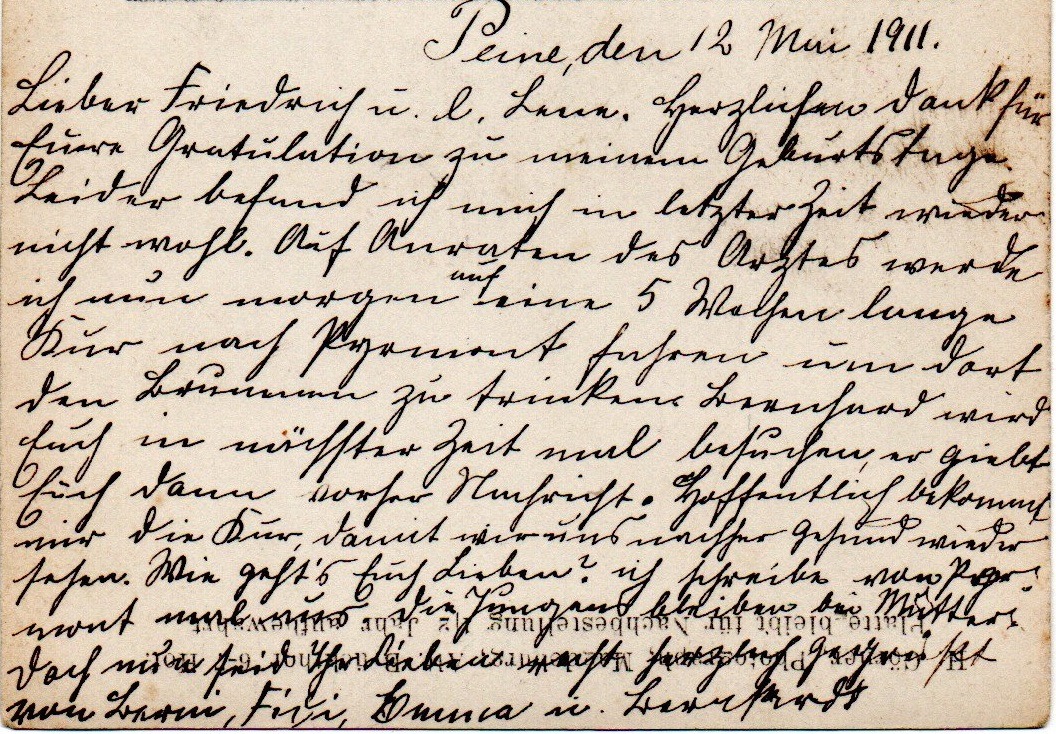 Peine, den 12 Mai 1911.
Lieber Friedrich u. l. Lene. Herzlichen Dank für
Euere Gratulation zu meinem Geburtstage.
Leider befand ich mich in letzter Zeit wieder
nicht wohl. Auf Anraten des Arztes werde
ich nun morgen auf eine 5 Wochen lange
Kur nach Pyrmont fahren um dort
den Brunnen zu trinken. Bernhard wird
Euch in nächster Zeit mal besuchen, er giebt
Euch dann vorher Nachricht. Hoffentlich bekommt
mir die Kur, damit wir uns nachher gesund wieder
sehen. Wie geht's Euch Lieben? ich schreibe von Pyr-
mont mal aus die Jungens bleiben bei Mutter.
Doch nun seid Ihr Lieben recht herzlich gegrüßt
von Berni, Emma u. Bernhard
Platte bleibt für Nachbestellung 1/2 Jahr aufbewahrt
Photograph, Magdeburg,